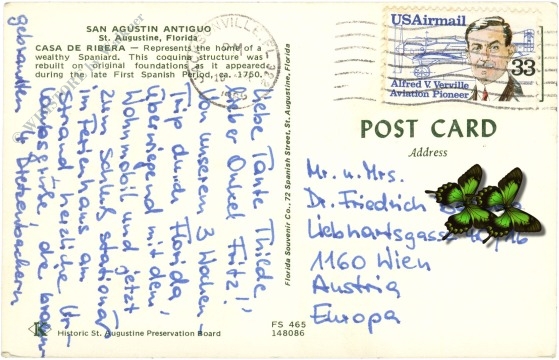 SAN AGUSTIN ANTIGUO
St. Augustine, Florida
CASA DE RIBERA — Represents the home of a
wealthy Spaniard. This coquina structure was
rebuilt on original foundations as it appeared
during the late First Spanish Period, ca. 1750.
Liebe Tante Thiede,
lieber Onkel Fritz!
Von unserem 3 Wochen-
Trip durch Florida,
überwiegend mit dem
Wohnmobil und jetzt
zum Schluß stationär
in Ferienhaus am
Strand, herzliche Ur-
laubsgrüße, die braun
gebrannten
Historic St. Augustine Preservation Board
FS 465
148086
Florida Souvenir Co., 72 Spanish Street, St. Augustine, Florida
USAirmail
33
Alfred V. Verville
Aviation Pioneer
POST CARD
Address
Mr. u. Mrs.
Dr. Friedrich
Liebhartsgasse
1160 Wien
Austria
Europa